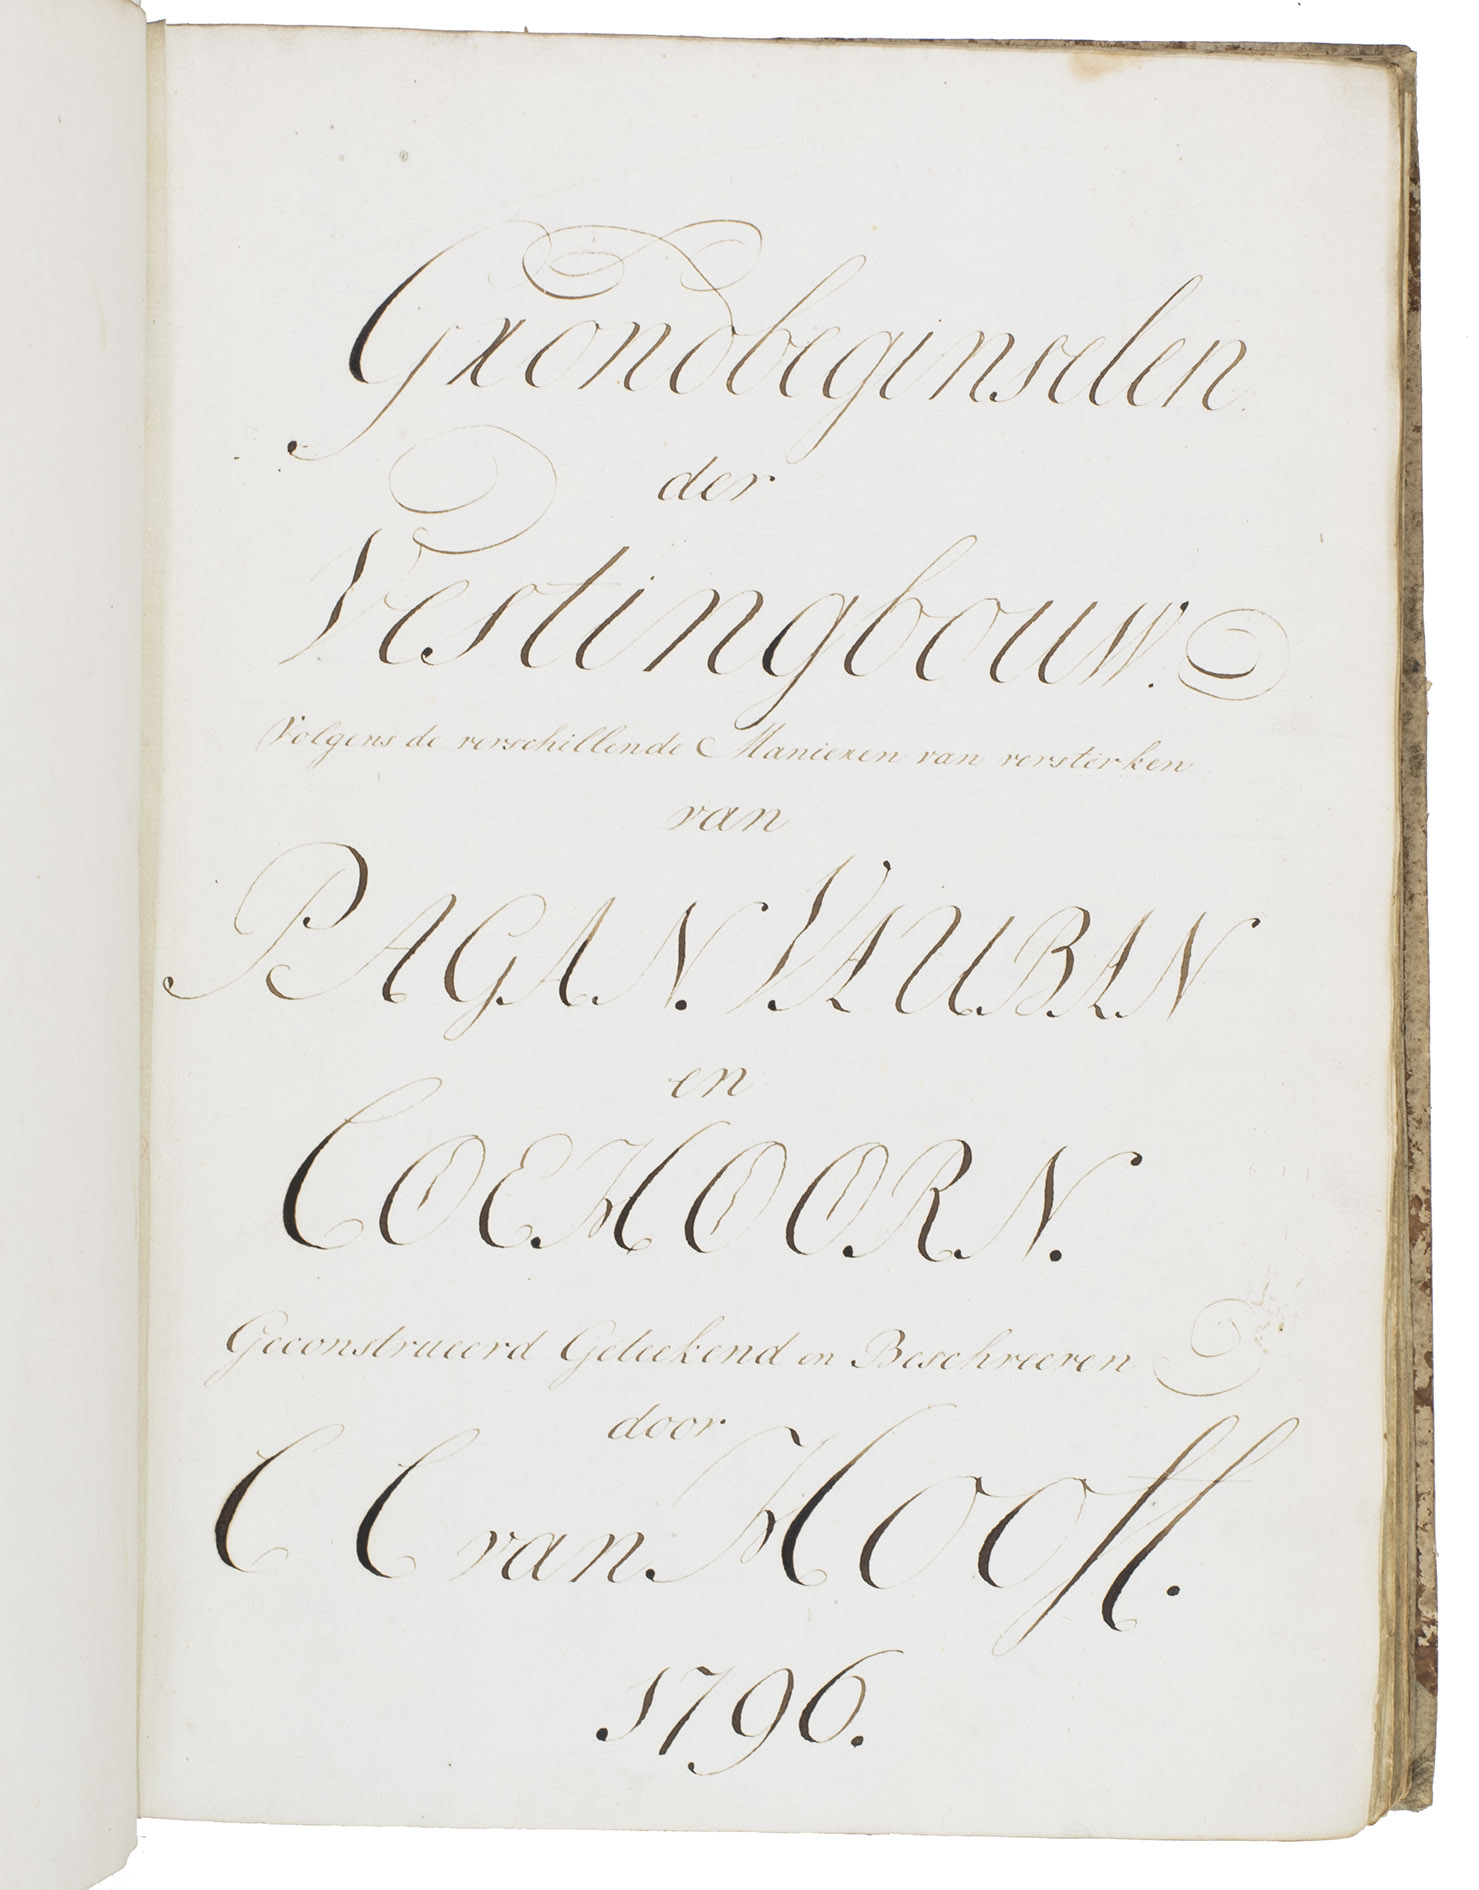 Grondbeginselen
der
Vestingbouw.
Volgens de verschillende Manieren van versterken
van
PAGAN. VAUBAN
en
COEHOORN.
Geconstrueerd Geteekend en Beschreeven
door
C C van Hooft.
1796.